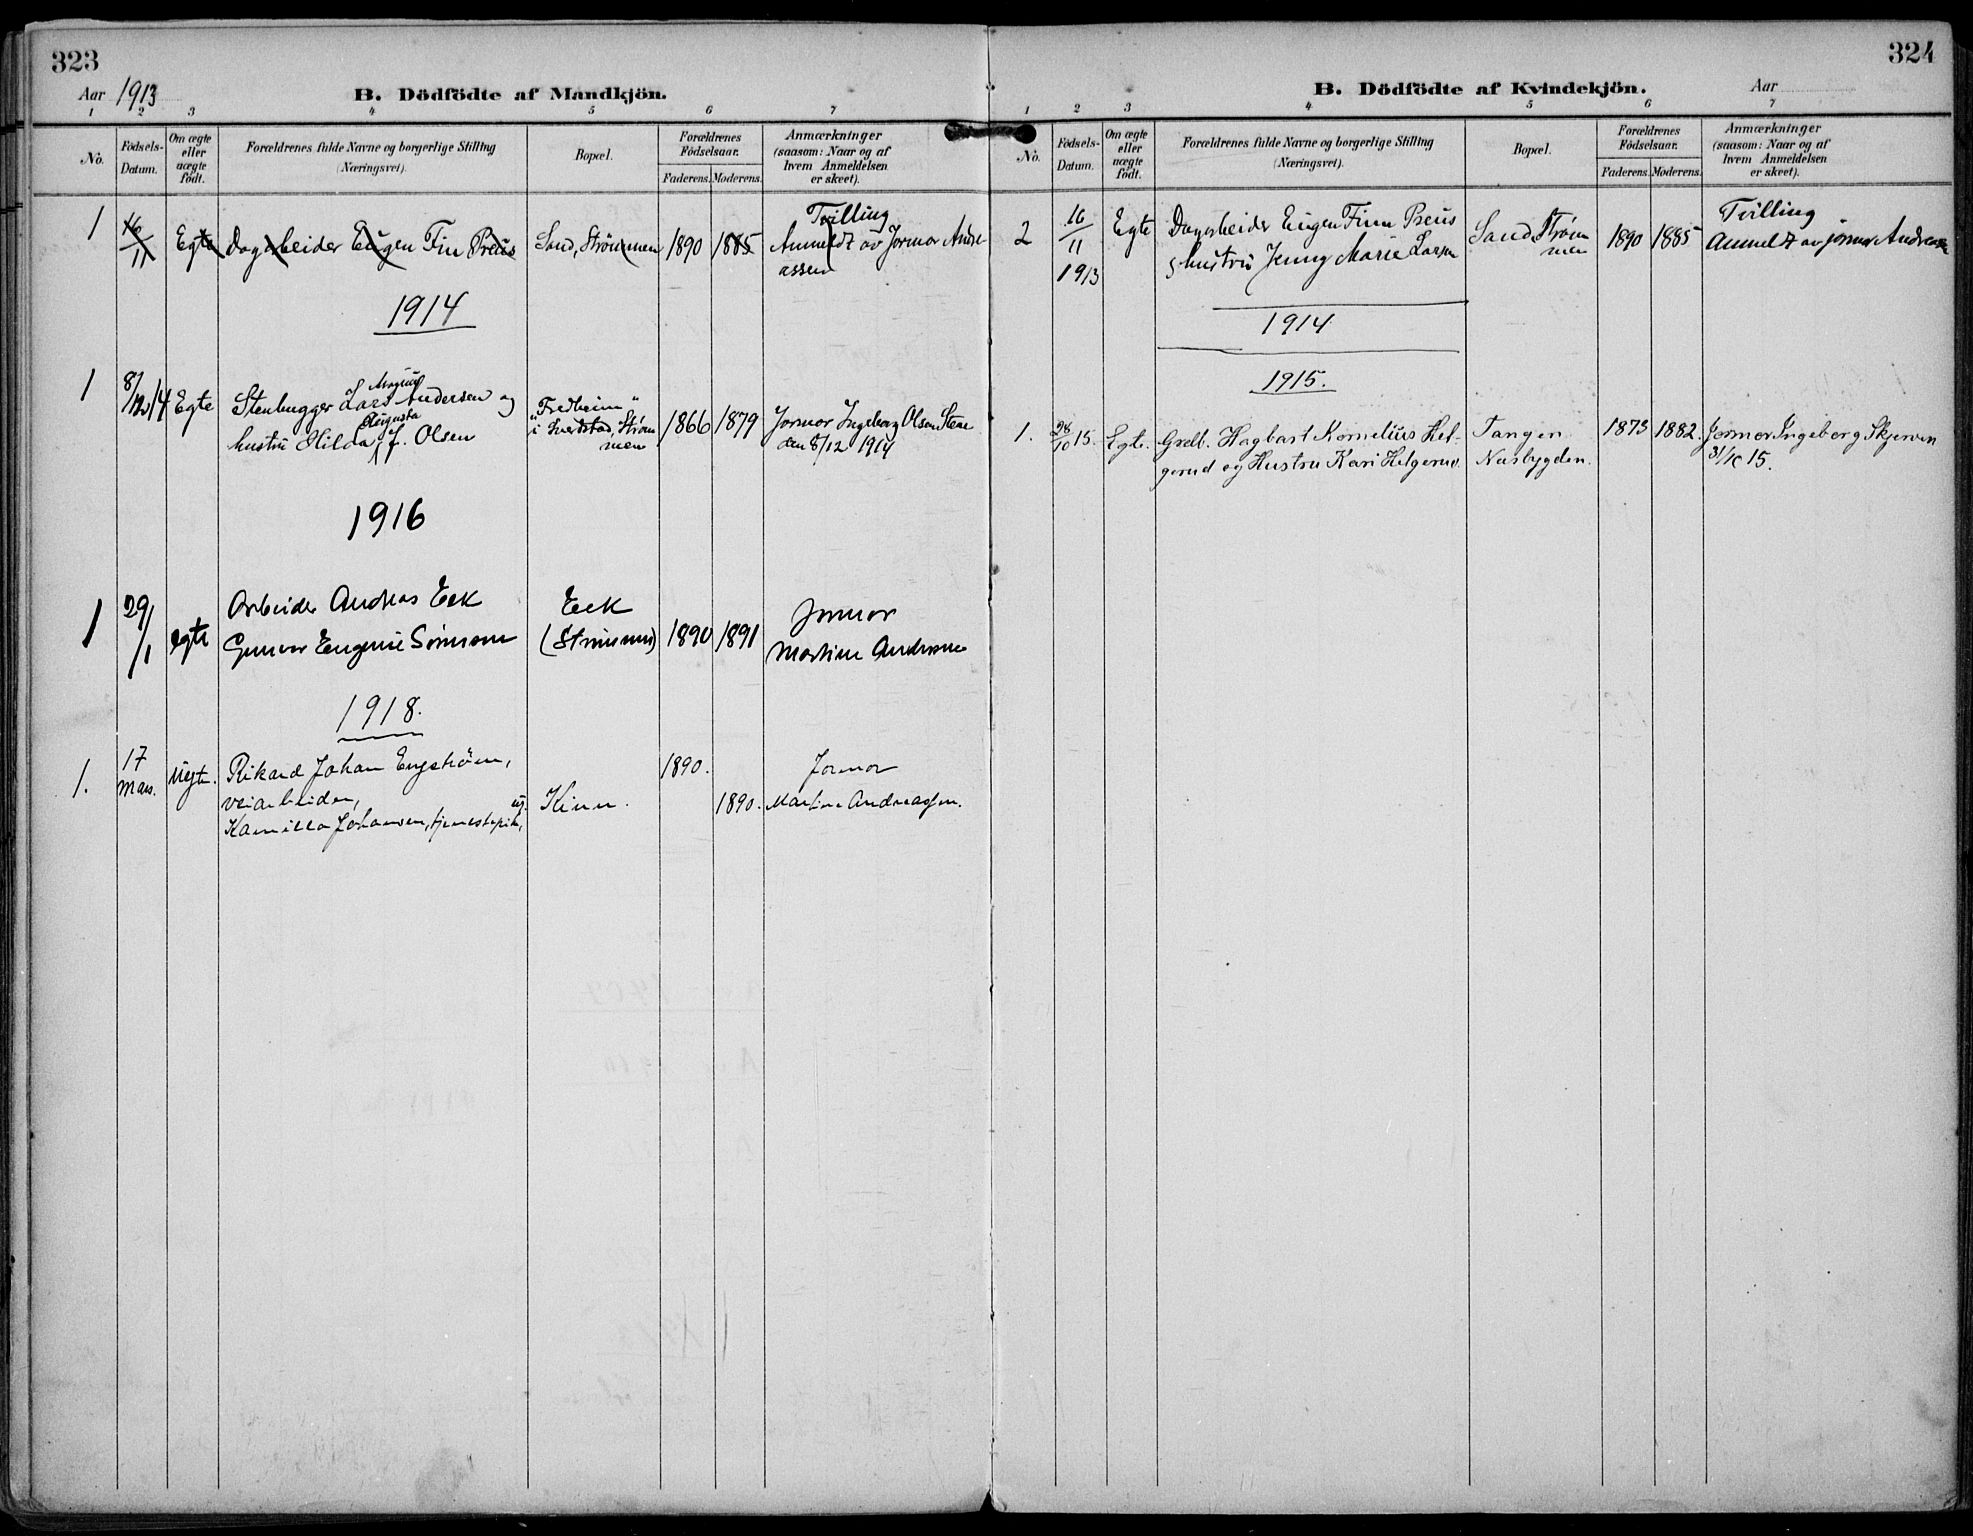 323
Aar 1913
B. Dödfödte af Mandkjön.
1 2 3 4 5 6 7
No.
Födsels-Datum.
Om ægte eller uægte födt.
Forældrenes fulde Navne og borgerlige Stilling (Næringsvei).
Bopæl.
Forældrenes Födselsaar.
Faderens. Moderens.
Anmærkninger (saasom: Naar og af hvem Anmeldelsen er skeet).
1 16/11 Egte Dagarbeider Eugen Fin Preüs Sand, Strömmen 1890 1885 Tvilling
Anmeldt av Jormor Andre-
assen
1914
1 8/12 14 Egte Stenhugger Lars Magnus Andersen og
hustru Hilda Augusta f. Olsen
"Fredheim"
i Sverdstad, Strøm
men
1866 1879 Jormor Ingeborg Olsen Stene
den 8/12 1914
1916
1 29/1 egte Arbeider Andreas Eek
Gunvor Eugenie Sörensen
Eek
(Strömmen)
1890 1891 Jormor
Martine Andreassen
1918.
1. 17 mars. Uegte. Rikard Johan Engström,
veiarbeider, og
Kamilla Johansen, tjenestepike,
Kinn.
1890. 1890.
Jormor
Martine Andreassen.
324
B. Dödfödte af Kvindekjön.
Aar
1 2 3 4 5 6 7
No.
Födsels-Datum.
Om ægte eller uægte födt.
Forældrenes fulde Navne og borgerlige Stilling (Næringsvei).
Bopæl.
Forældrenes Födselsaar.
Faderens. Moderens.
Anmærkninger (saasom: Naar og af hvem Anmeldelsen er skeet).
2 16/11 1913 Egte Dagarbeider Eugen Finn Preus
g hustru Jenny Marie Larsen
Sand, Strøm
men
1890 1885 Tvilling
Anmeldt av jormor Andreassen
1914
1915.
1. 28/10 15. Egte. Grdb. Hagbart Kornelius Hel-
gerud og Hustru Kari Helgerud.
Tangen
Nesbygden.
1873 1882. Jormor Ingeborg Skjerven
31/10 15.